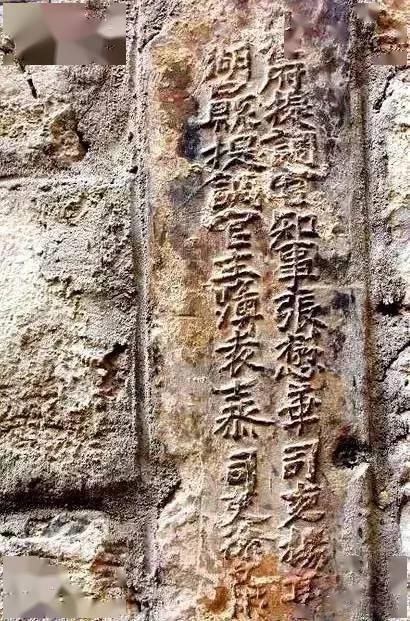 府提調官知事張懋華司吏楊
湖口縣提調官主簿袁泰司吏徐